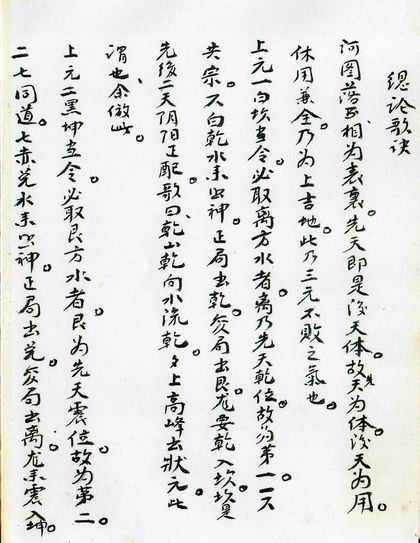 總論歌訣
河圖落书相为表裏。先天即是後天体。故先天为体。後天为用。
体用兼全乃为上吉地。此乃三元不敗之氣也。
上元一白坎当令。必取离方水者。离乃先天乾位。故为第一。一六
共宗。六白乾水来照神。正局出乾。变局出艮。龙要乾入坎。坎是
先後二天阴阳正配。歌曰。乾山乾向水流乾。乾上高峰出狀元。此
謂也。余倣此。
上元二黑坤当令。必取艮方水者。艮为先天震位。故为第二。
二七同道。七赤兌水来照神。正局出兌。变局出离。龙来震入坤。